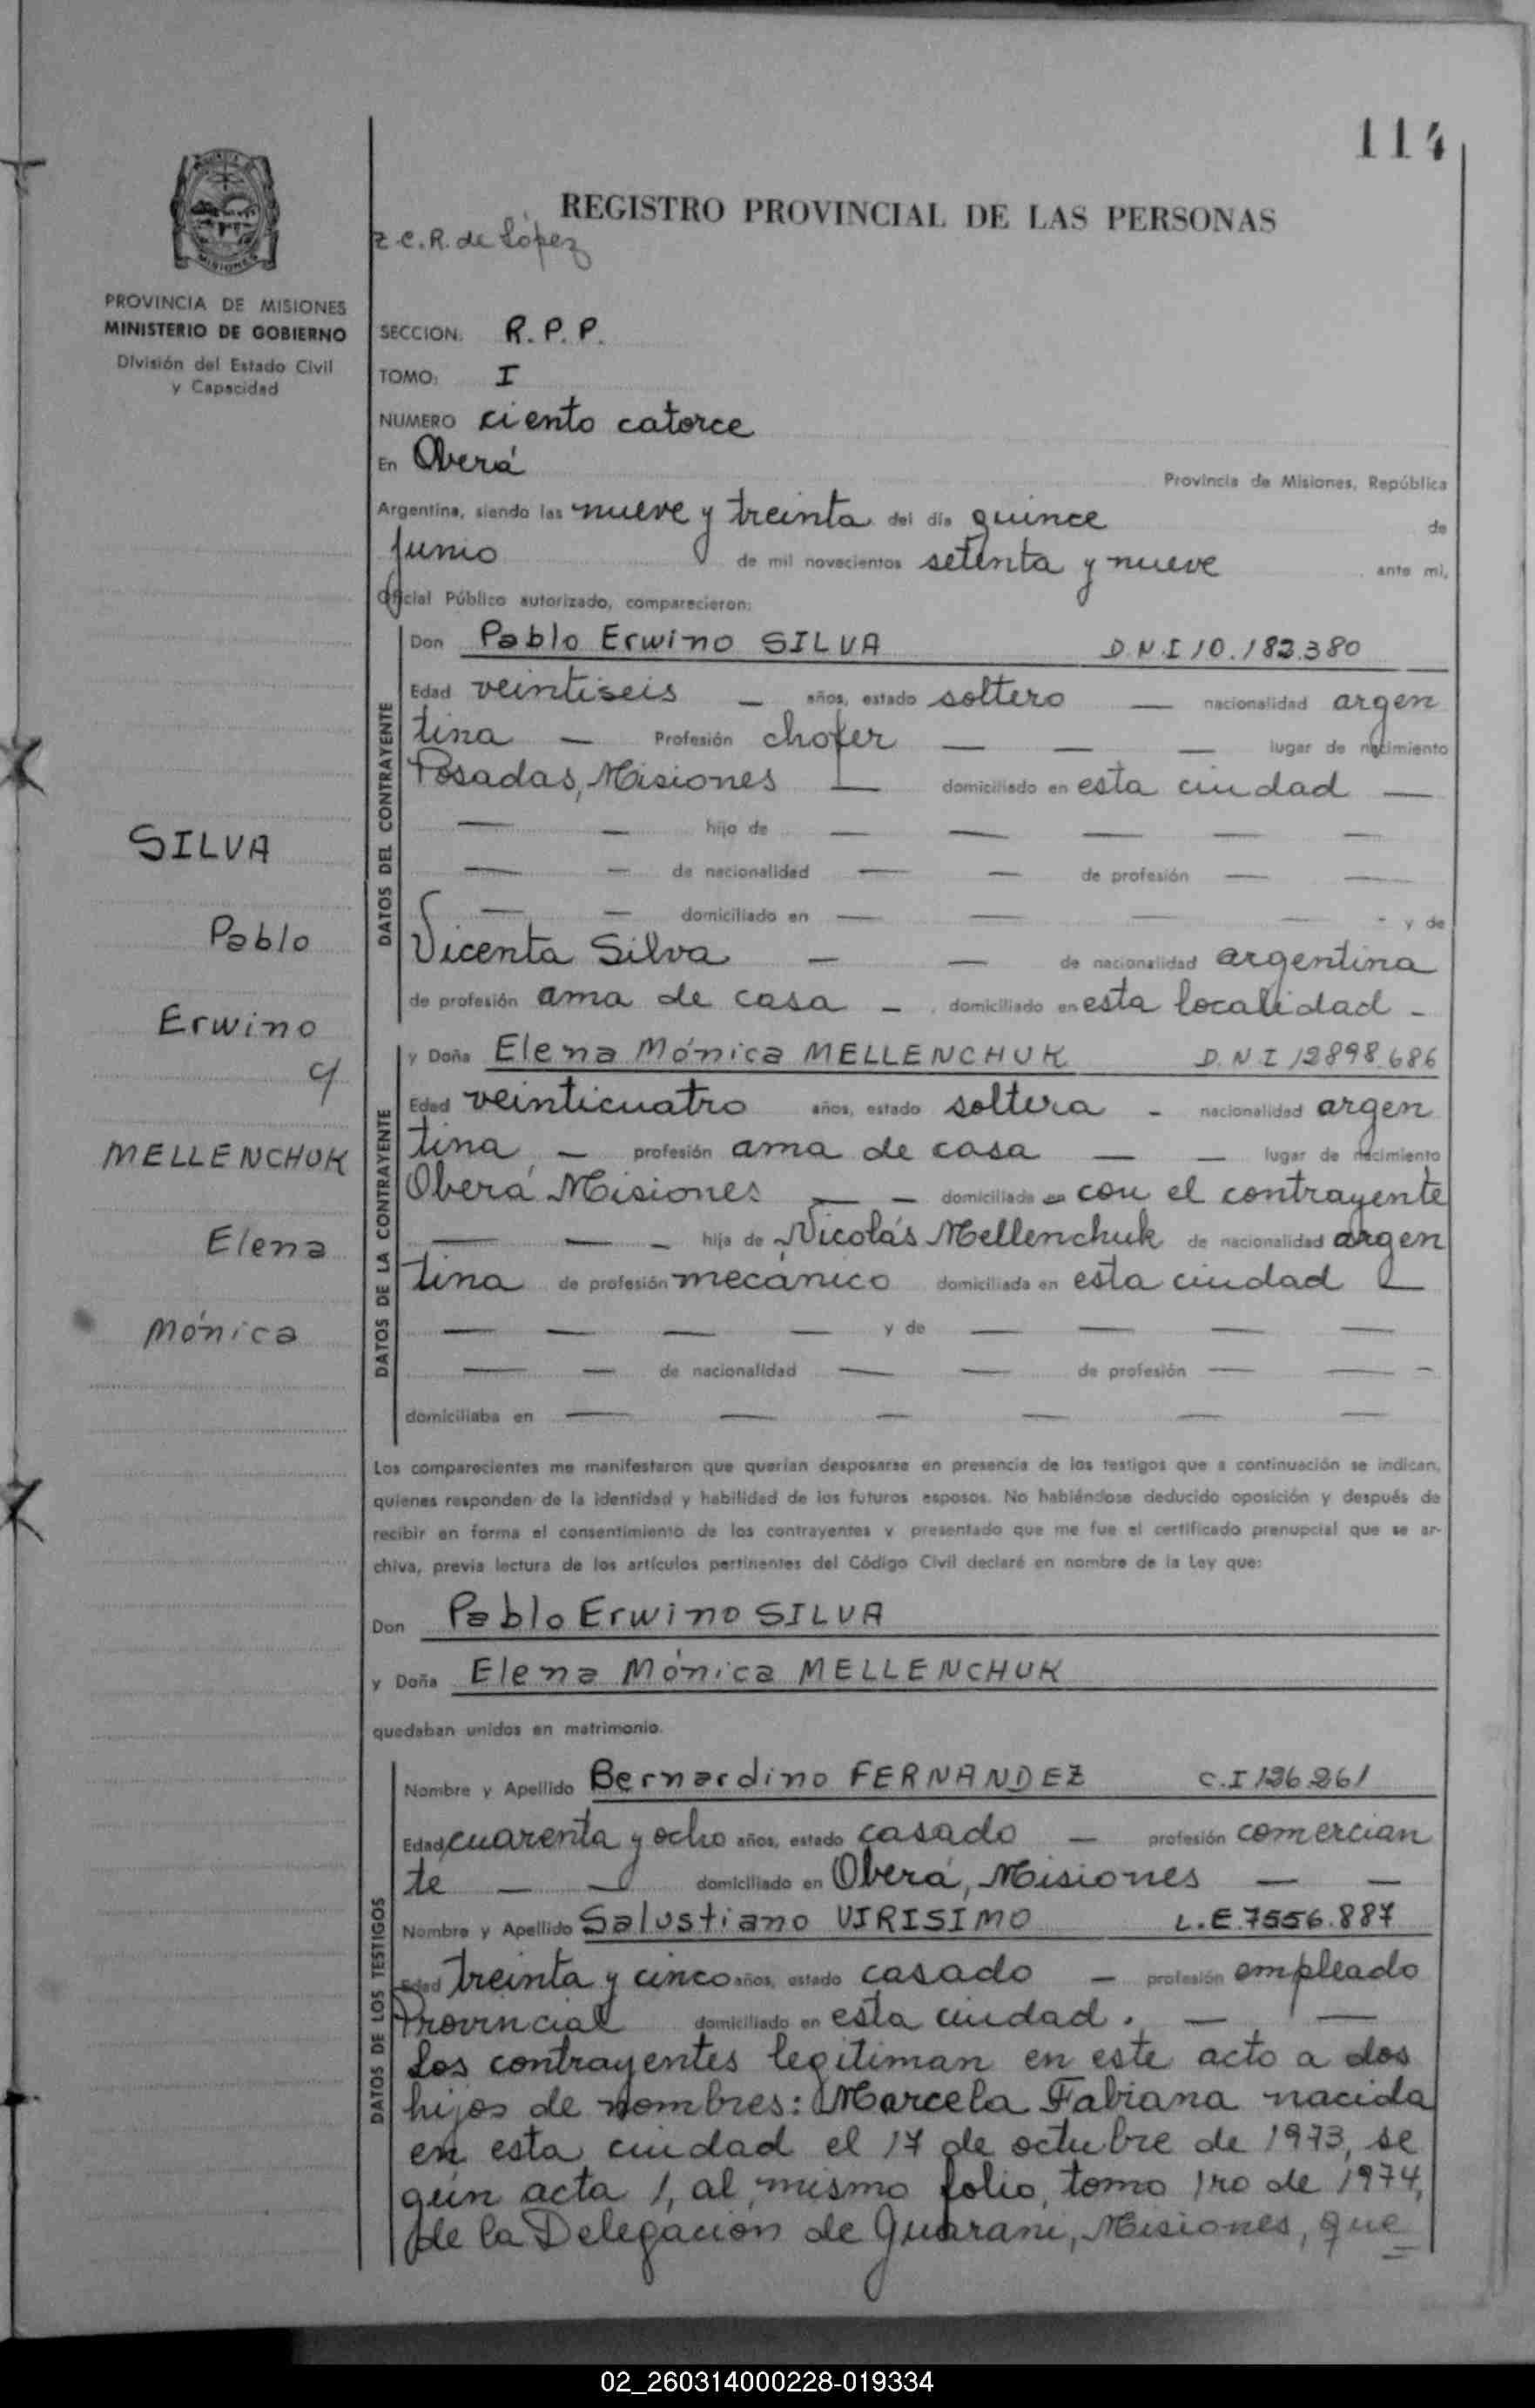 114
REGISTRO PROVINCIAL DE LAS PERSONAS
Z.C.R. de López
MISIONES
PROVINCIA DE MISIONES
MINISTERIO DE GOBIERNO
División del Estado Civil
y Capacidad
SECCION: R. P. P.
TOMO: I
NUMERO ciento catorce
En Oberá
Provincia de Misiones, República
Argentina, siendo las nueve y treinta del día quince de
junio de mil novecientos setenta y nueve ante mi,
Oficial Público autorizado, comparecieron:
DATOS DEL CONTRAYENTE
Don Pablo Erwino SILVA D.N.I 10.182.380
Edad veintiseis — años, estado soltero — nacionalidad argen
tina — Profesión chofer — — — lugar de nacimiento
Posadas, Misiones — domiciliado en esta ciudad —
— — hijo de — — — — —
— — de nacionalidad — — de profesión — —
— — domiciliado en — — — — - y de
Vicenta Silva — — de nacionalidad argentina
de profesión ama de casa — domiciliado en esta localidad -
SILVA
Pablo
Erwino
y
MELLENCHUK
Elena
Mónica
DATOS DE LA CONTRAYENTE
y Doña Elena Mónica MELLENCHUK D.N.I 12898.686
Edad veinticuatro años, estado soltera - nacionalidad argen
tina, — profesión ama de casa — — lugar de nacimiento
Oberá Misiones — — domiciliada en con el contrayente
— — — hija de Nicolás Mellenchuk de nacionalidad argen
tina de profesión mecánico domiciliada en esta ciudad —
— — — — y de — — — —
— — de nacionalidad — — de profesión — — —
domiciliaba en — — — — — —
Los comparecientes me manifestaron que querían desposarse en presencia de los testigos que a continuación se indican,
quienes responden de la identidad y habilidad de los futuros esposos. No habiéndose deducido oposición y después de
recibir en forma el consentimiento de los contrayentes y presentado que me fue el certificado prenupcial que se ar-
chiva, previa lectura de los artículos pertinentes del Código Civil declaré en nombre de la Ley que:
Don Pablo Erwino SILVA
y Doña Elena Mónica MELLENCHUK
quedaban unidos en matrimonio.
DATOS DE LOS TESTIGOS
Nombre y Apellido Bernardino FERNANDEZ C.I 136.261
Edad cuarenta y ocho años, estado casado — profesión comercian
te — — domiciliado en Oberá, Misiones — —
Nombre y Apellido Salustiano VIRISIMO L.E.7556.887
Edad treinta y cinco años, estado casado — profesión empleado
Provincial domiciliado en esta ciudad. — —
Los contrayentes legitiman en este acto a dos
hijos de nombres: Marcela Fabiana nacida
en esta ciudad el 17 de octubre de 1973, se
gún acta 1, al mismo folio, tomo 1ro de 1974,
de la Delegación de Guarani, Misiones, que
02_260314000228-019334